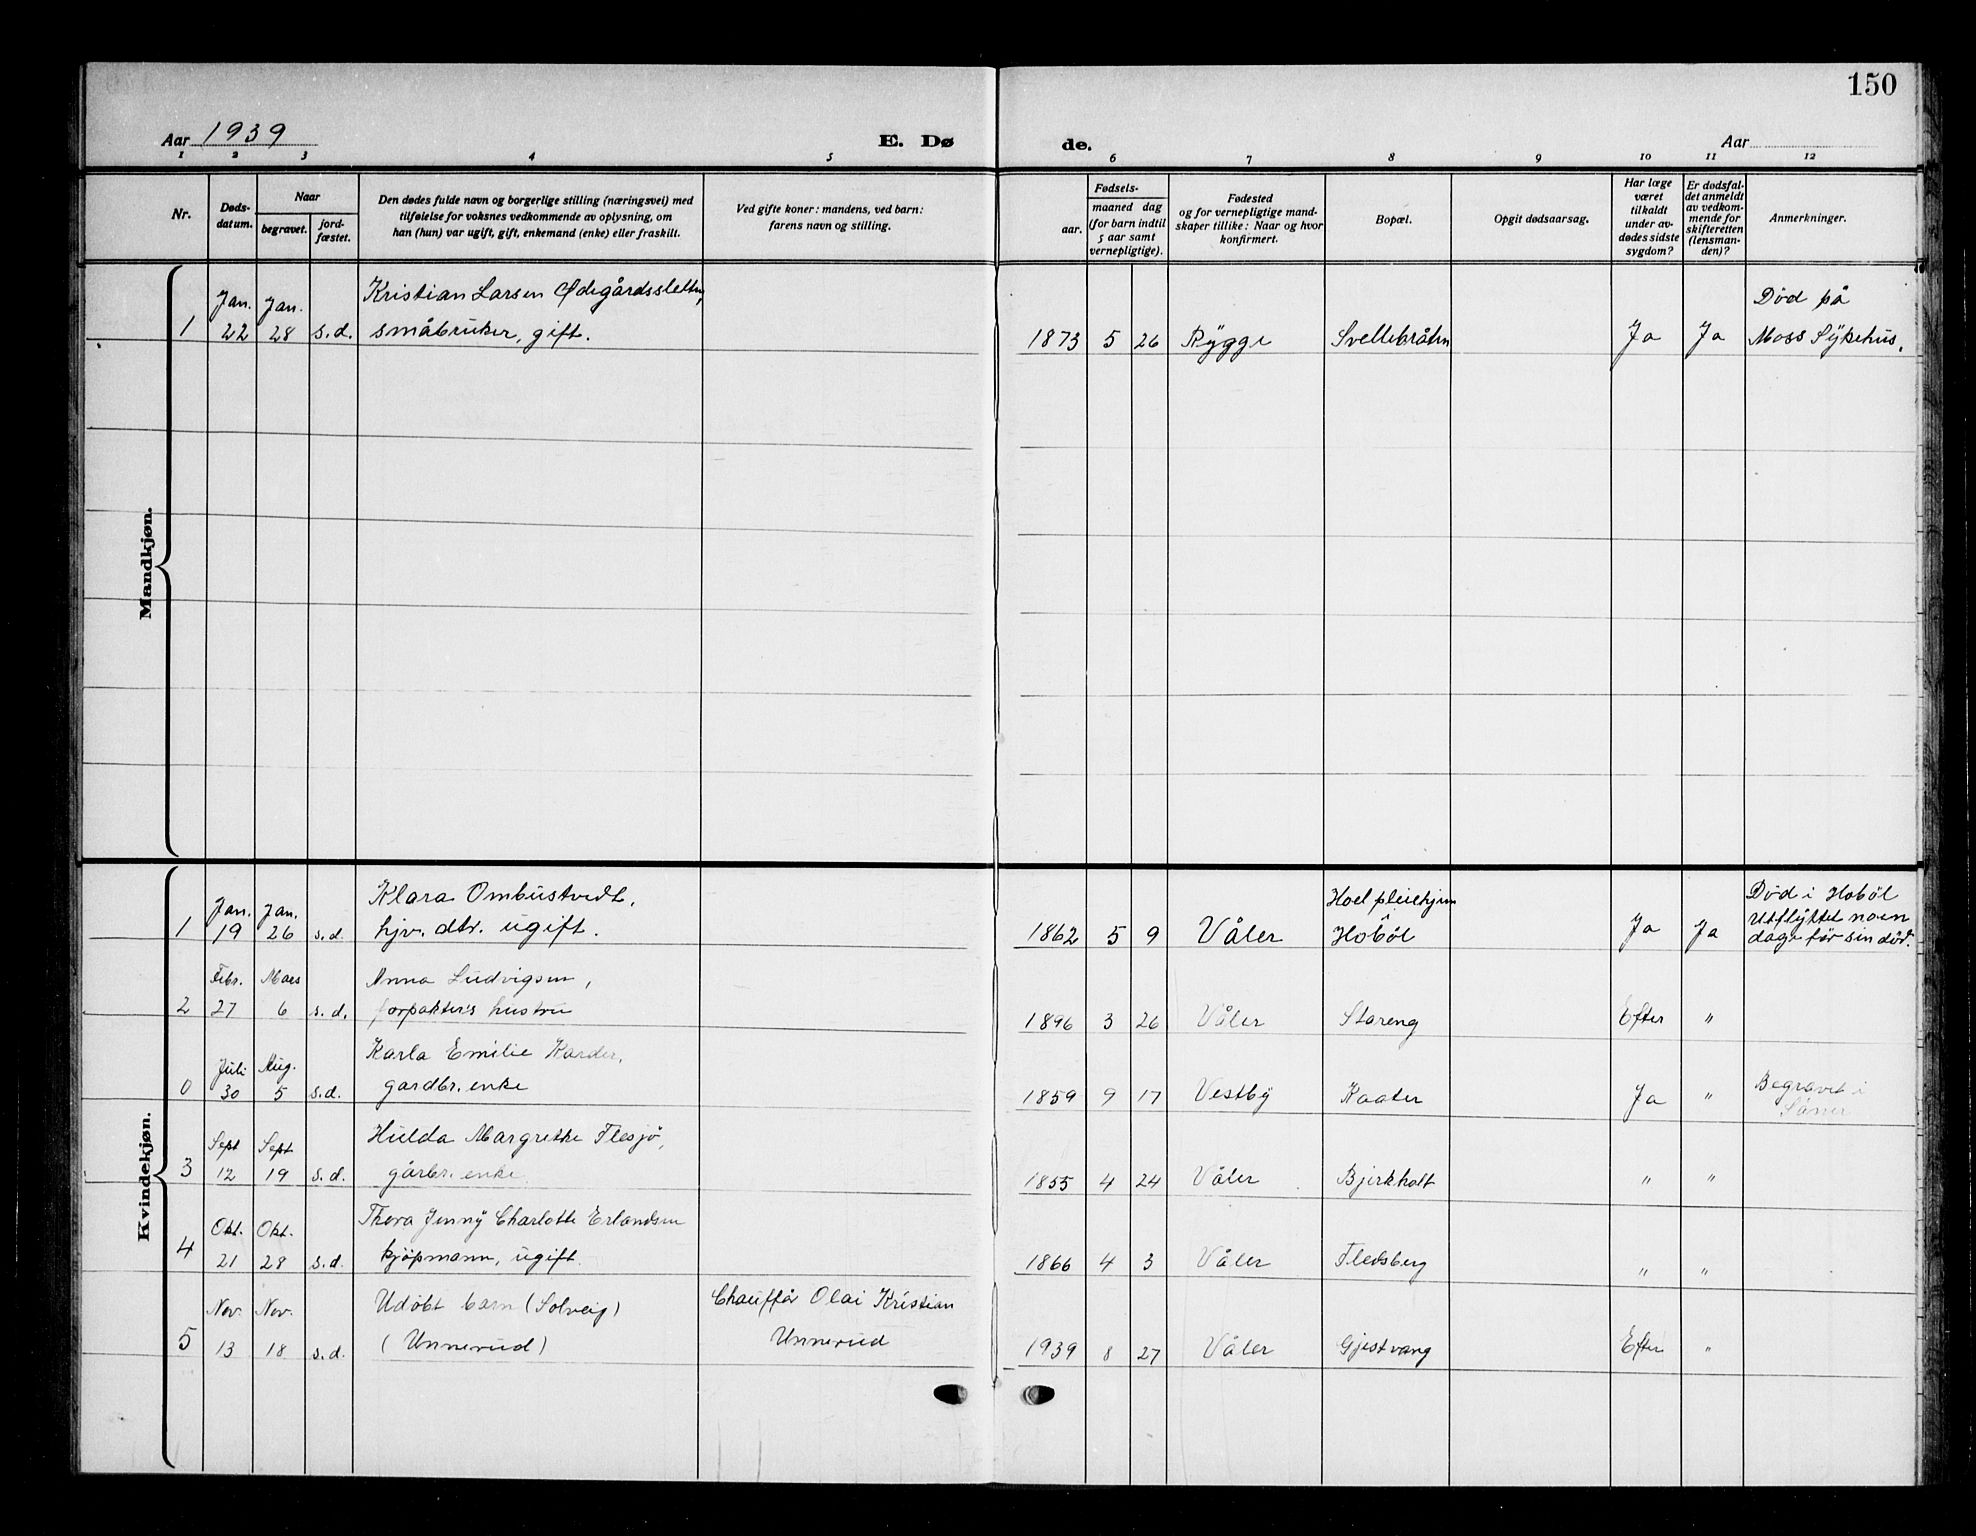 150
Aar 1939
E. Dø
de.
Aar
1 2 3 4 5 6 7 8 9 10 11 12
Nr.
Døds-
datum.
Naar
begravet.
jord-
fæstet.
Den dødes fulde navn og borgerlige stilling (næringsvei) med
tilføielse for voksnes vedkommende av oplysning, om
han (hun) var ugift, gift, enkemand (enke) eller fraskilt.
Ved gifte koner: mandens, ved barn:
farens navn og stilling.
aar.
Fødsels-
maaned dag
(for barn indtil
5 aar samt
vernepligtige).
Fødested
og for vernepligtige mand-
skaper tillike: Naar og hvor
konfirmert.
Bopæl.
Opgit dødsaarsag.
Har læge
været
tilkaldt
under av-
dødes sidste
sygdom?
Er dødsfal-
det anmeldt
av vedkom-
mende for
skifteretten
(lensman-
den)?
Anmerkninger.
Mandkjøn.
Jan. Jan. Kristian Larsen Ødegårdssletten, Død på
1 22 28 s.d. småbruker, gift. 1873 5 26 Rygge Svellebråten Ja Ja Moss Sykehus.
Kvindekjøn.
Jan. Jan. Klara Ombustvedt, Hoel pleiehjem Død i Hobøl
Utflyttet noen
1 19 26 s.d. hjv. dtr. ugift. 1862 5 9 Våler Hobøl Ja Ja dage før sin død.
Febr. Mars Anna Ludvigsen,
2 27 6 s.d. forpakter's hustru 1896 3 26 Våler Stareng Efter "
Juli Aug. Karla Emilie
0 30 5 s.d. gardbr. enke 1859 9 17 Vestby Ja " Begravet i
Såner
Sept Sept Hulda Margrethe Flesjø,
3 12 19 s.d. gårbr. enke. 1855 4 24 Våler Bjerkholt " "
Okt. Okt. Thora Jenny Charlotte Erlandsen
4 21 28 s.d. kjøpmann, ugift. 1866 4 3 Våler " "
Nov. Nov. Udøbt barn (Solveig) Chauffør Olai Kristian
5 13 18 s.d. (Unnerud) Unnerud 1939 8 27 Våler Gjestvang Efter "